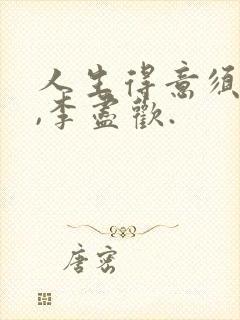 人生得意須
,李盡歡.
唐密